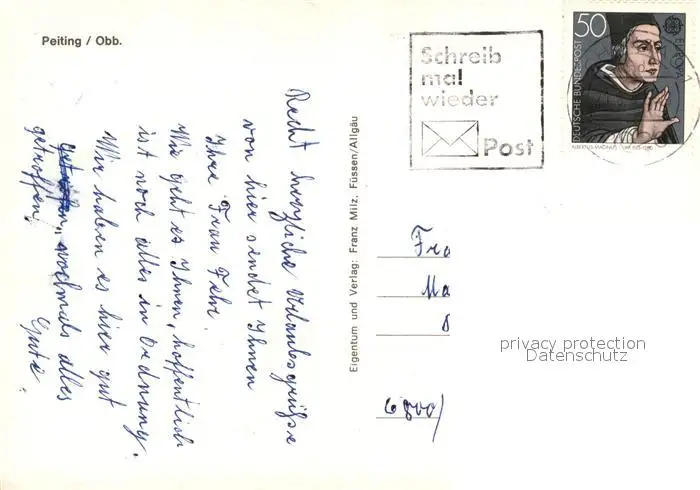 Peiting / Obb.
Recht herzliche Urlaubsgrüße
von hier sendet Ihnen
Ihre Frau Fehr.
Wie geht es Ihnen, hoffentlich
ist noch alles in Ordnung.
Wir haben es hier gut
getroffen, nochmals alles
getroffen
Gute.
Eigentum und Verlag: Franz Milz, Füssen/Allgäu
Schreib
mal
wieder
Post
50
DEUTSCHE BUNDESPOST
EUROPA
ALBERTUS MAGNUS
Fra
Ma
6800/
privacy protection
Datenschutz